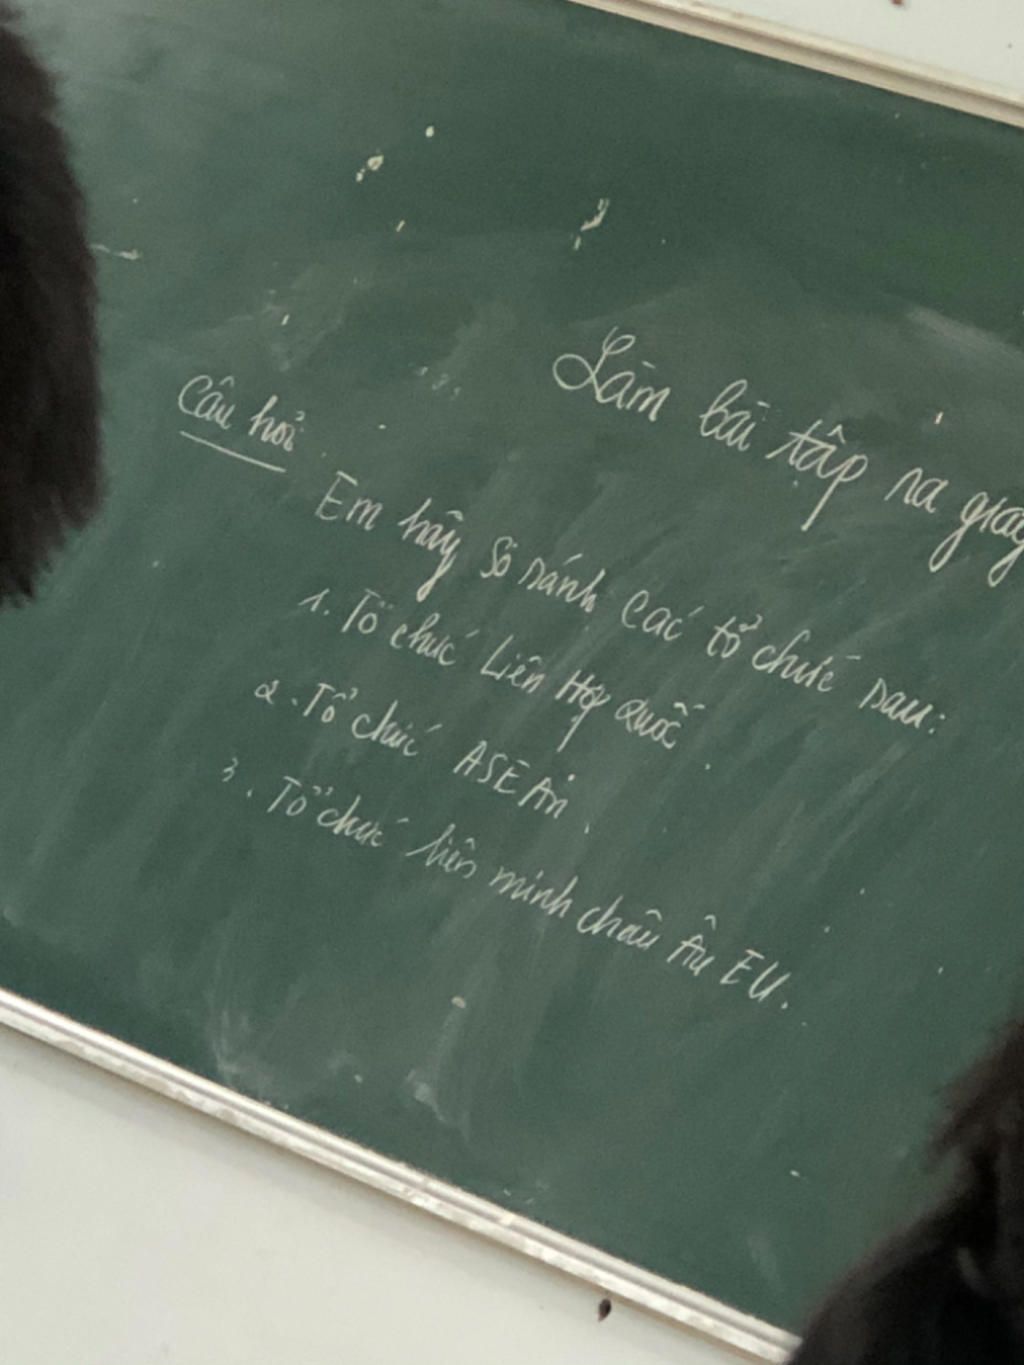 Làm bài tập ra giấy
Câu hỏi
Em hãy so sánh các tổ chức sau:
1. Tổ chức Liên Hợp Quốc.
2. Tổ chức ASEAN.
3. Tổ chức liên minh châu Âu EU.